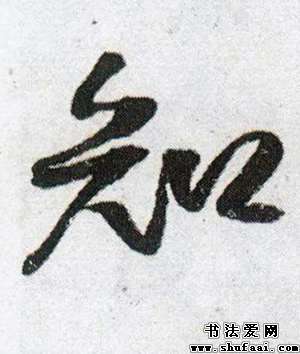 知
书法爱网
www.shufaai.com